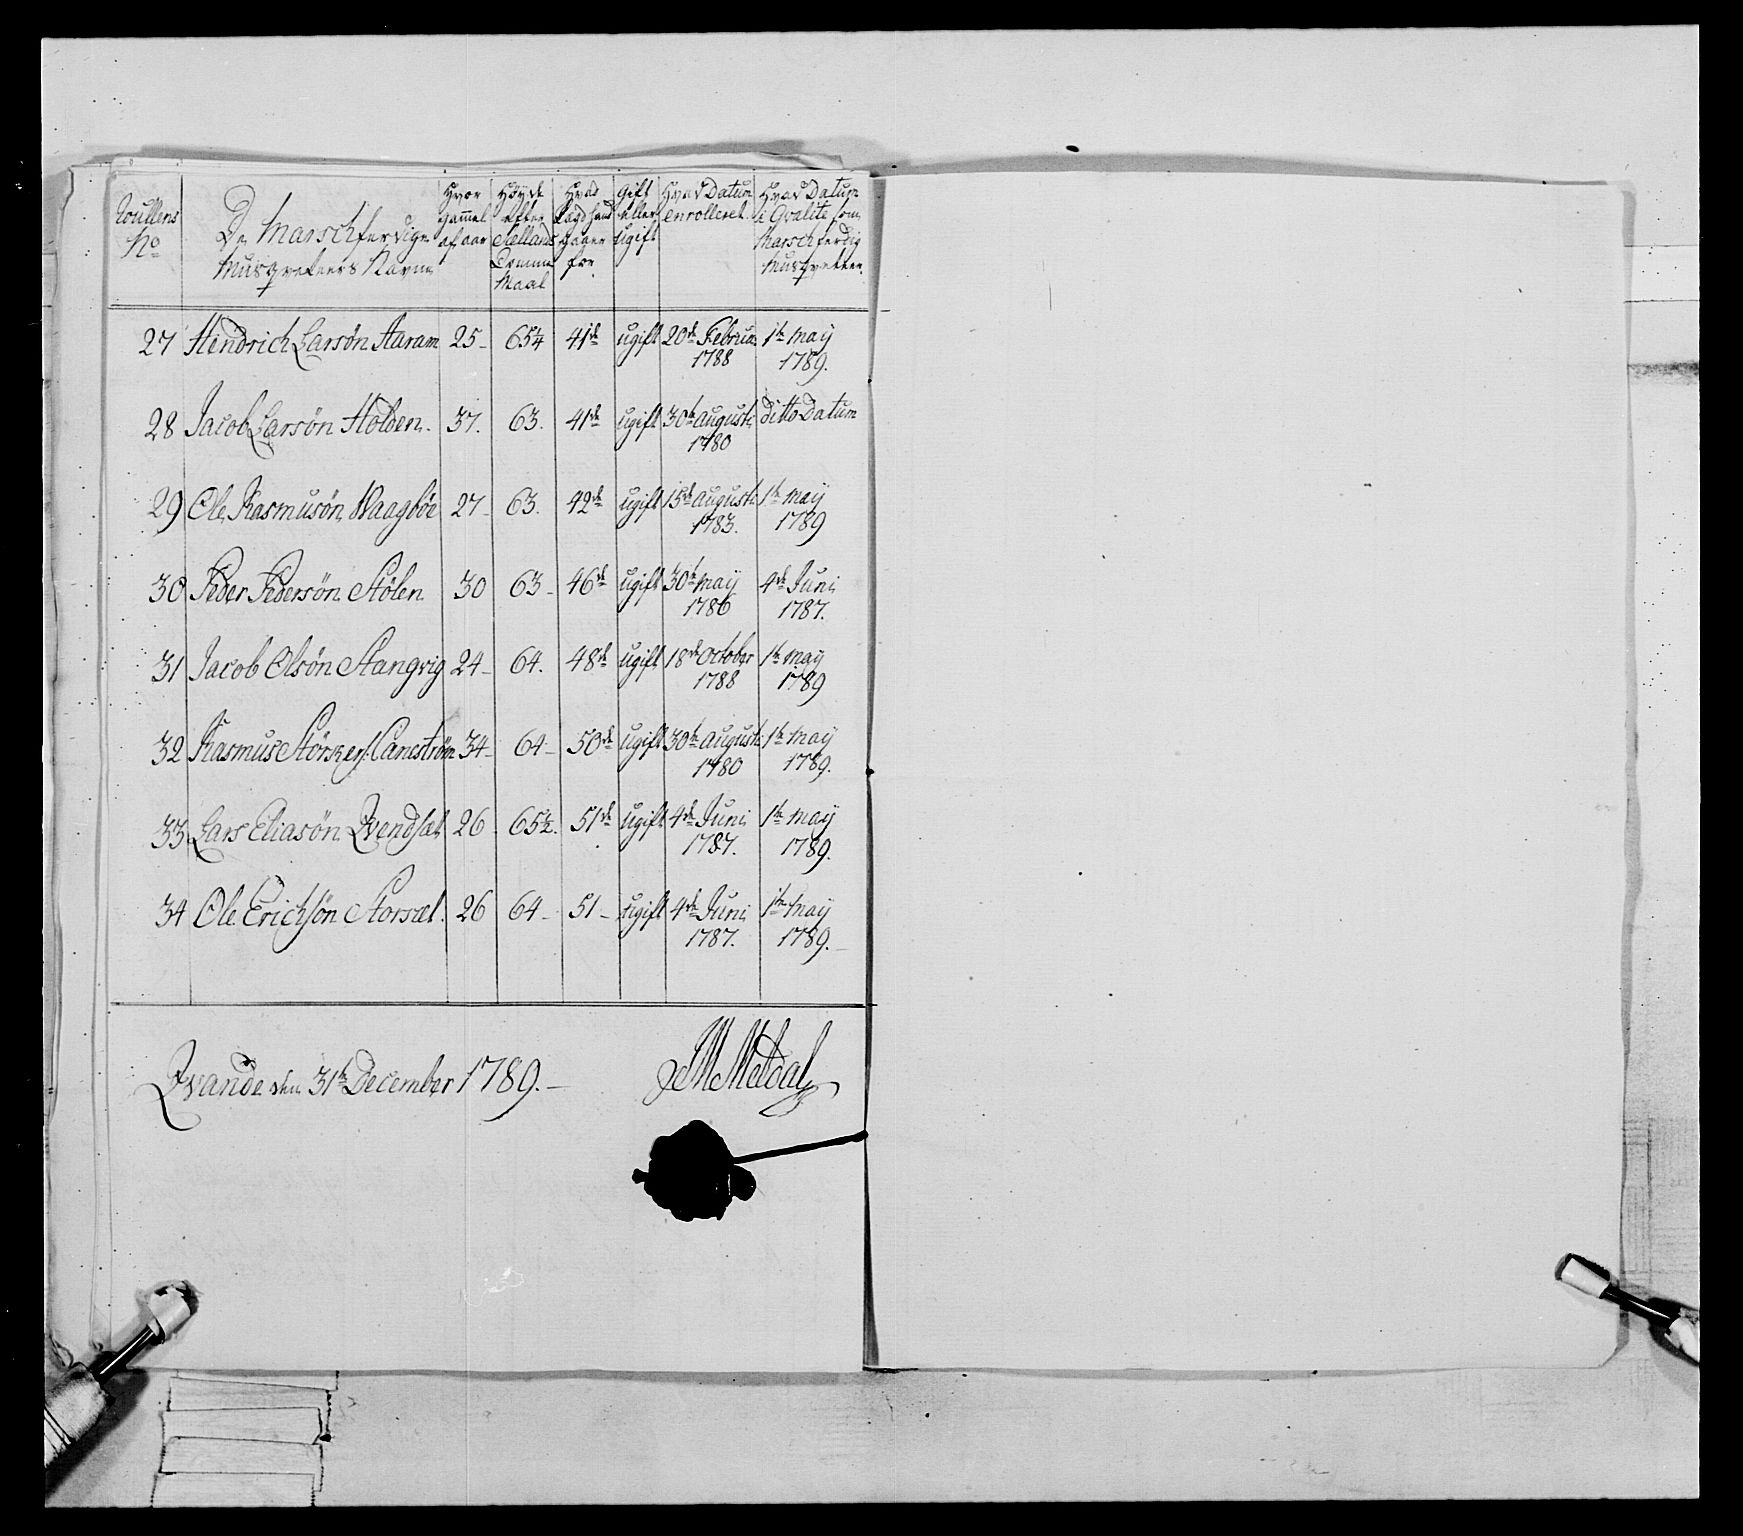 Roullens No
De Marschferdige Musqveteers Navne
Hvor gammel af aar
Høyde efter Siellands Tomme Maal
Hvad Lægd hand staaer for
Gift eller Ugift
Hvad Datum enrolleret
Hvad Datum i Qvalite som Marschferdig Musqveteer
27 Hendrich Larsøn Aaram 25 65¼ 41de ugift 20de Februar 1788 1te may 1789.
28 Jacob Larsøn Holden. 37. 63. 41de ugift 30te august 1780 ditto Datum
29 Ole Rasmusøn Waagbøe 27 63. 42de ugift 15de august 1783. 1te may 1789
30 Peder Pedersøn Stølen 30 63 46de ugift 30te may 1786 4de Juni 1787.
31 Jacob Olsøn Stangvig 24 64. 48de ugift 18de October 1788 1te may 1789
32 Rasmus Størkers. 34 64 50de ugift 30te august 1780 1te may 1789.
33 Lars Eliasøn 26 65½. 51de ugift 4de Juni 1787. 1te may 1789.
34 Ole Erichsøn Storsæt. 26 64 51 ugift 4de Juni 1787. 1te may 1789.
Qvande den 31te December 1789.
JM Meldal